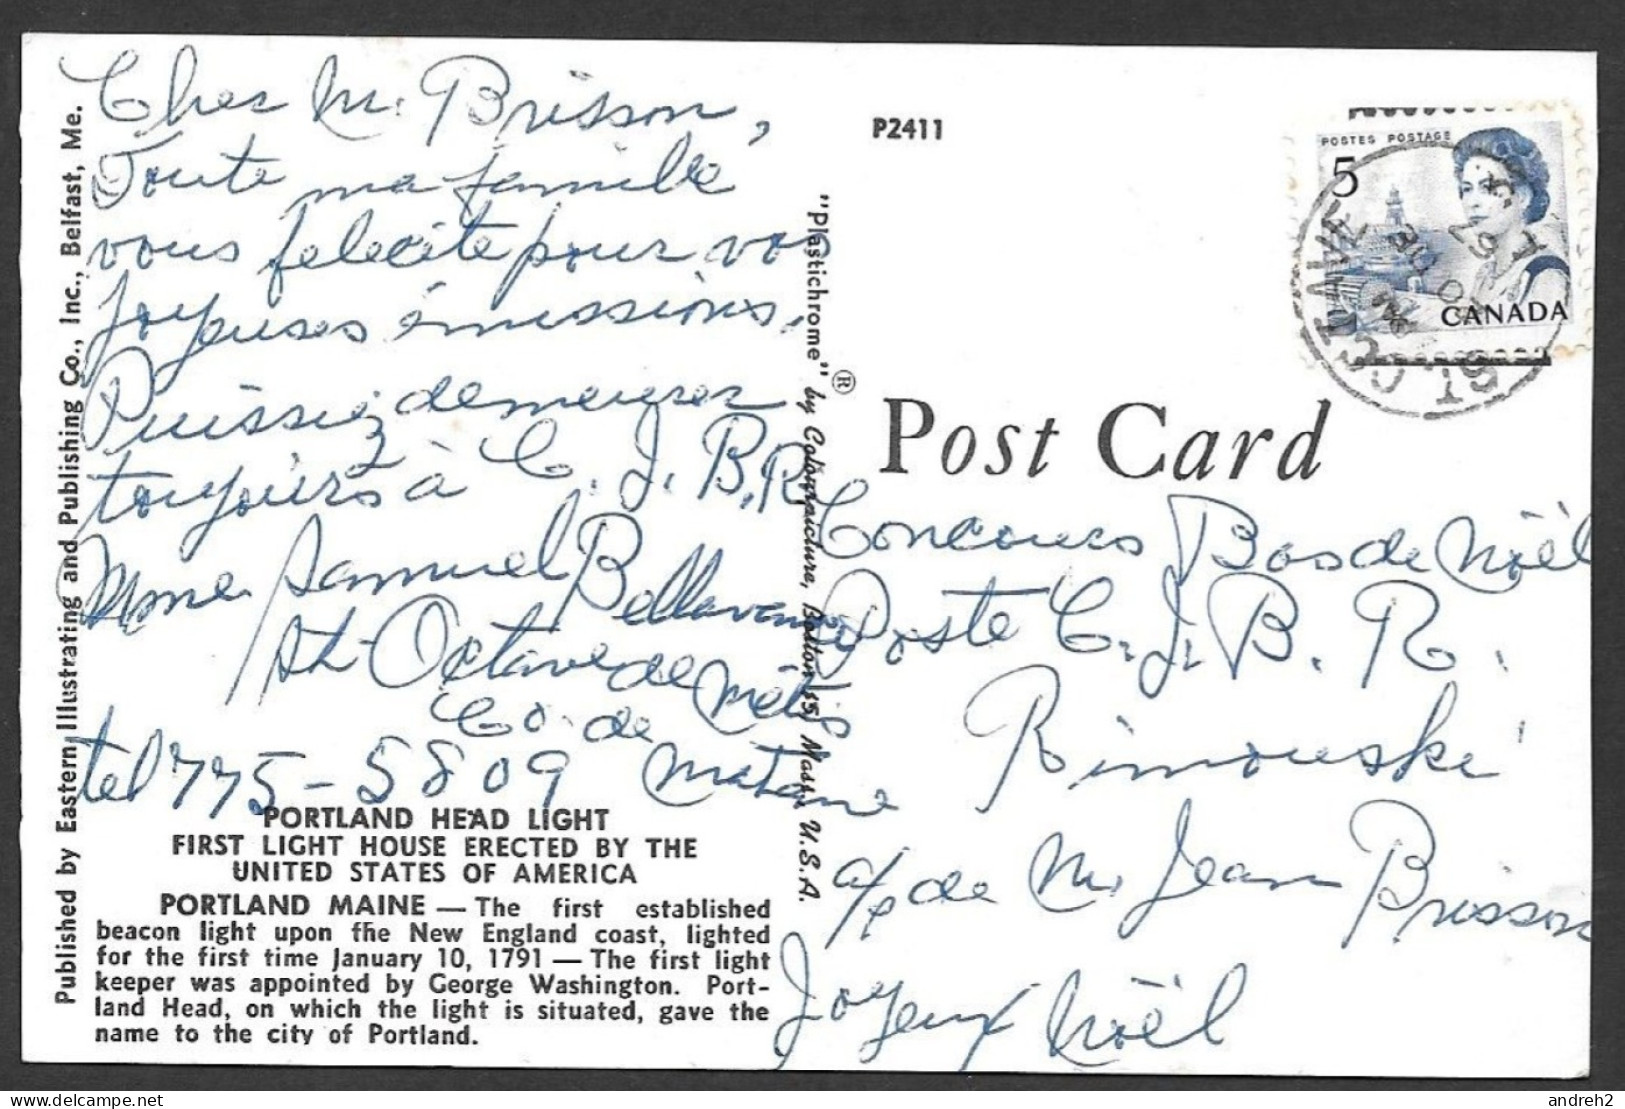 Cher M. Brisson,
Toute ma famille
vous felecite pour vos
joyeuses émissions.
Puissiez demeurer
toujours à C. J. B. R.
Mme Samuel Bellavance
St-Octave de Métis
Co. de
Matane
tel 775-5809
PORTLAND HEAD LIGHT
FIRST LIGHT HOUSE ERECTED BY THE
UNITED STATES OF AMERICA
PORTLAND MAINE — The first established
beacon light upon the New England coast, lighted
for the first time January 10, 1791 — The first light
keeper was appointed by George Washington. Port-
land Head, on which the light is situated, gave the
name to the city of Portland.
Published by Eastern Illustrating and Publishing Co., Inc., Belfast, Me.
"Plastichrome" ® by Colourpicture, Boston 15, Mass., U.S.A.
P2411
POSTES POSTAGE
5
CANADA
ST OCTAVE
Post Card
Concours Bas de Noël
Poste C. J. B. R.
Rimouski
a/s de M. Jean Brisson
Joyeux Noël
delcampe.net
andreh2